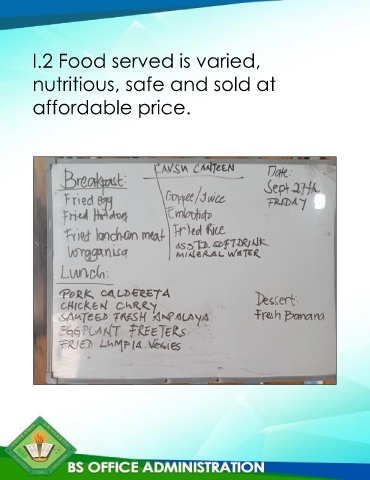 I.2 Food served is varied,
nutritious, safe and sold at
affordable price.
CAVSU CANTEEN
Date:
Sept 27th
FRIDAY
Breakfast:
Fried egg
Fried Hotdog
Fried lancheon meat
longganisa
Coffee/Juice
Embotido
Fried Rice
ASSTD. SOFTDRINK
MINERAL WATER
Lunch:
PORK CALDERETA
CHICKEN CURRY
SAUTEED FRESH AMPALAYA
EGGPLANT FREETERS
FRIED LUMPIA VEGIES
Dessert:
Fresh Banana
BS OFFICE ADMINISTRATION